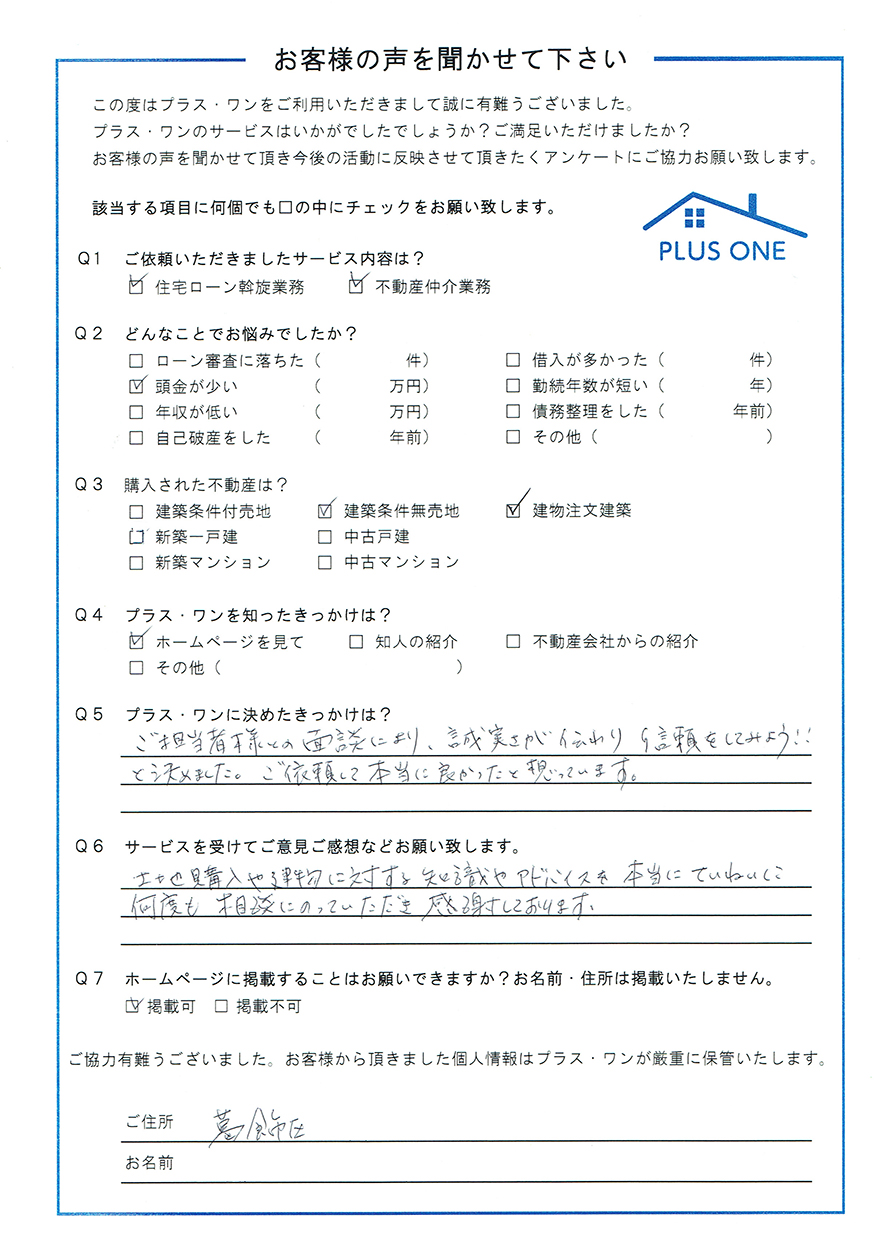 お客様の声を聞かせて下さい
この度はプラス・ワンをご利用いただきまして誠に有難うございました。
プラス・ワンのサービスはいかがでしたでしょうか？ご満足いただけましたか？
お客様の声を聞かせて頂き今後の活動に反映させて頂きたくアンケートにご協力お願い致します。
該当する項目に何個でも□の中にチェックをお願い致します。
PLUS ONE
Q1 ご依頼いただきましたサービス内容は？
☑ 住宅ローン斡旋業務 ☑ 不動産仲介業務
Q2 どんなことでお悩みでしたか？
□ ローン審査に落ちた（ 件） □ 借入が多かった（ 件）
☑ 頭金が少い （ 万円） □ 勤続年数が短い（ 年）
□ 年収が低い （ 万円） □ 債務整理をした（ 年前）
□ 自己破産をした （ 年前） □ その他（ ）
Q3 購入された不動産は？
□ 建築条件付売地 ☑ 建築条件無売地 ☑ 建物注文建築
□ 新築一戸建 □ 中古戸建
□ 新築マンション □ 中古マンション
Q4 プラス・ワンを知ったきっかけは？
☑ ホームページを見て □ 知人の紹介 □ 不動産会社からの紹介
□ その他（ ）
Q5 プラス・ワンに決めたきっかけは？
ご担当者様との面談により、誠実さが伝わり信頼をしてみよう!!
と決めました。ご依頼して本当に良かったと想っています。
Q6 サービスを受けてご意見ご感想などお願い致します。
土地購入や建物に対する知識やアドバイスを本当にていねいに
何度も相談にのっていただき感謝しております。
Q7 ホームページに掲載することはお願いできますか？お名前・住所は掲載いたしません。
☑ 掲載可 □ 掲載不可
ご協力有難うございました。お客様から頂きました個人情報はプラス・ワンが厳重に保管いたします。
ご住所 葛飾区
お名前